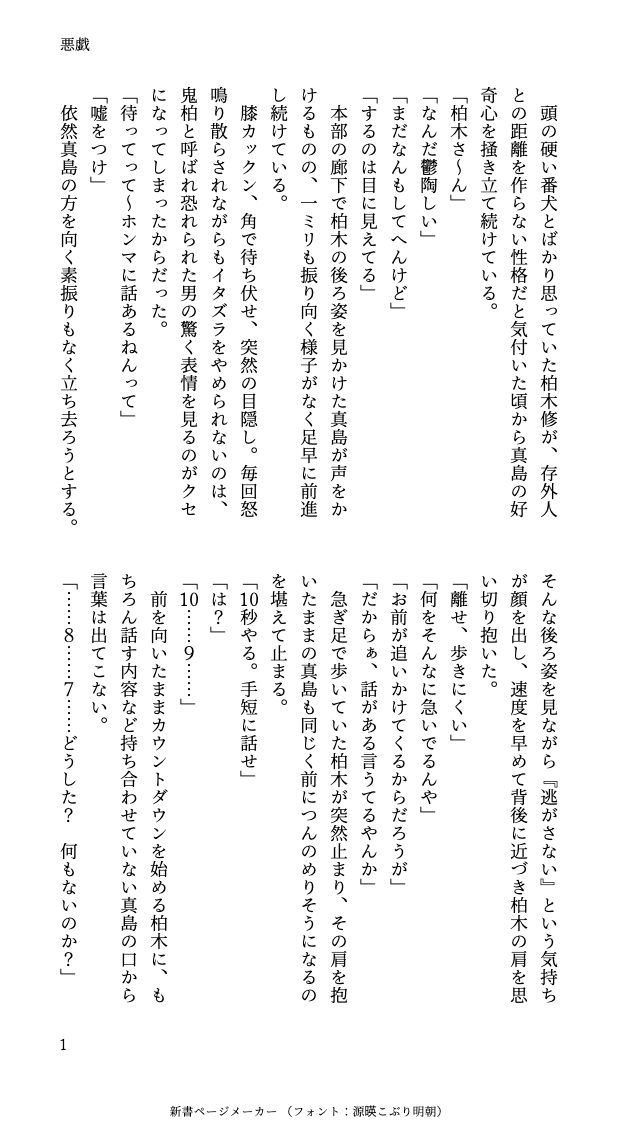 悪戯
　頭の硬い番犬とばかり思っていた柏木修が、存外人
との距離を作らない性格だと気付いた頃から真島の好
奇心を掻き立て続けている。
「柏木さ〜ん」
「なんだ鬱陶しい」
「まだなんもしてへんけど」
「するのは目に見えてる」
　本部の廊下で柏木の後ろ姿を見かけた真島が声をか
けるものの、一ミリも振り向く様子がなく足早に前進
し続けている。
　膝カックン、角で待ち伏せ、突然の目隠し。毎回怒
鳴り散らされながらもイタズラをやめられないのは、
鬼柏と呼ばれ恐れられた男の驚く表情を見るのがクセ
になってしまったからだった。
「待ってって〜ホンマに話あるねんって」
「嘘をつけ」
　依然真島の方を向く素振りもなく立ち去ろうとする。
そんな後ろ姿を見ながら『逃がさない』という気持ち
が顔を出し、速度を早めて背後に近づき柏木の肩を思
い切り抱いた。
「離せ、歩きにくい」
「何をそんなに急いでるんや」
「お前が追いかけてくるからだろうが」
「だからぁ、話がある言うてるやんか」
　急ぎ足で歩いていた柏木が突然止まり、その肩を抱
いたままの真島も同じく前につんのめりそうになるの
を堪えて止まる。
「10秒やる。手短に話せ」
「は？」
「10……9……」
　前を向いたままカウントダウンを始める柏木に、も
ちろん話す内容など持ち合わせていない真島の口から
言葉は出てこない。
「……8……7……どうした？　何もないのか？」
1
新書ページメーカー（フォント：源暎こぶり明朝）